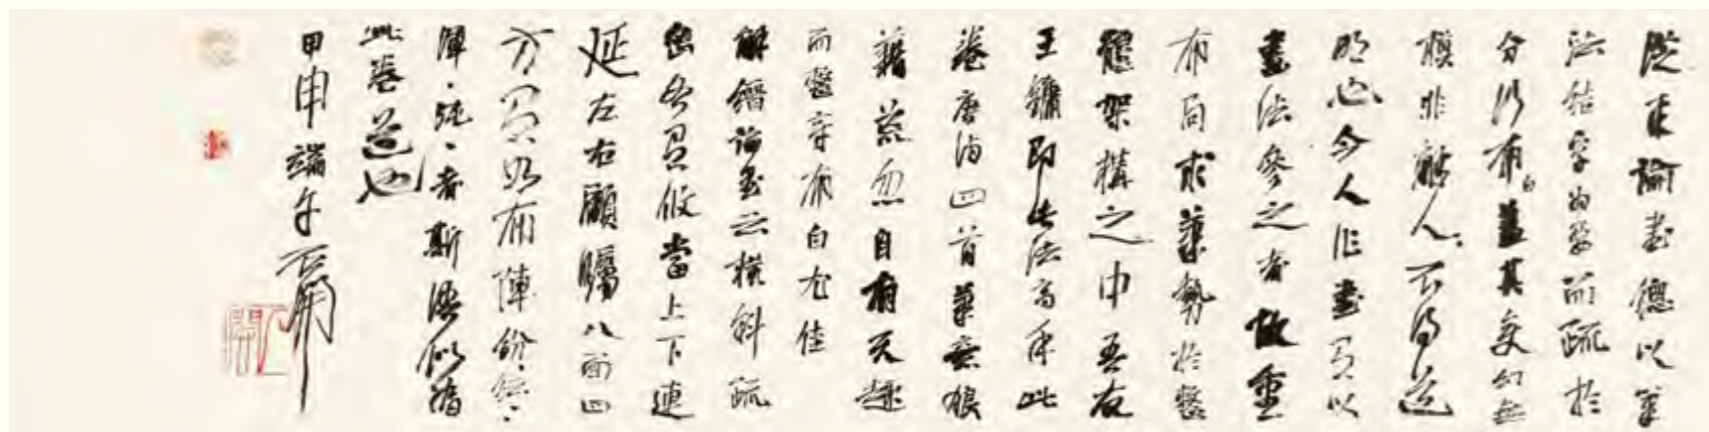 從來論書總以筆
法結字為要而疏於
分行布白蓋其變幻無
模非解人不得道
也今人作畫以
畫法參之者故重
布局求筆勢於整
體架構之中吾友
王鏞即此法高手此
卷唐詩四首筆意狼
藉荒忽自有天趣
而整章布自尤佳
解縉論書云橫斜疏
密各有攸當上下連
延左右顧矚八面四
方有如布陣紛紛紜紜
渾渾沌沌者斯語似為
此卷道也
甲申端午石開